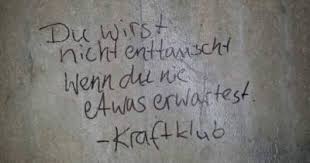 Du wirst
nicht enttäuscht
wenn du nie
etwas erwartest.
-Kraftklub